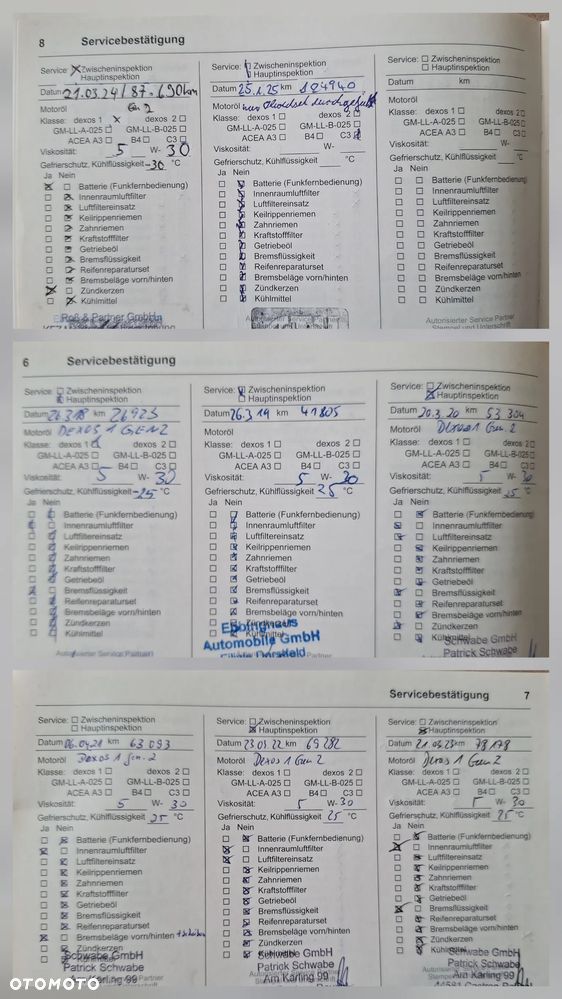 8 Servicebestätigung
Service: Zwischeninspektion
Hauptinspektion
Datum 21.03.24 / 87.690 km
Motoröl Gen 2
Klasse: dexos 1 dexos 2
GM-LL-A-025 GM-LL-B-025
ACEA A3 B4 C3
Viskosität: 5 W- 30
Gefrierschutz, Kühlflüssigkeit -30 °C
Ja Nein
Batterie (Funkfernbedienung)
Innenraumluftfilter
Luftfiltereinsatz
Keilrippenriemen
Zahnriemen
Kraftstofffilter
Getriebeöl
Bremsflüssigkeit
Reifenreparaturset
Bremsbeläge vorn/hinten
Zündkerzen
Kühlmittel
Roß & Partner GmbH
Service: Zwischeninspektion
Hauptinspektion
Datum 25.1.25 km 124940
Motoröl nur
Klasse: dexos 1 dexos 2
GM-LL-A-025 GM-LL-B-025
ACEA A3 B4 C3
Viskosität: W-
Gefrierschutz, Kühlflüssigkeit °C
Ja Nein
Batterie (Funkfernbedienung)
Innenraumluftfilter
Luftfiltereinsatz
Keilrippenriemen
Zahnriemen
Kraftstofffilter
Getriebeöl
Bremsflüssigkeit
Reifenreparaturset
Bremsbeläge vorn/hinten
Zündkerzen
Kühlmittel
Service: Zwischeninspektion
Hauptinspektion
Datum km
Motoröl
Klasse: dexos 1 dexos 2
GM-LL-A-025 GM-LL-B-025
ACEA A3 B4 C3
Viskosität: W-
Gefrierschutz, Kühlflüssigkeit °C
Ja Nein
Batterie (Funkfernbedienung)
Innenraumluftfilter
Luftfiltereinsatz
Keilrippenriemen
Zahnriemen
Kraftstofffilter
Getriebeöl
Bremsflüssigkeit
Reifenreparaturset
Bremsbeläge vorn/hinten
Zündkerzen
Kühlmittel
Autorisierter Service Partner
Stempel und Unterschrift
6 Servicebestätigung
Service: Zwischeninspektion
Hauptinspektion
Datum 26.3.18 km 26923
Motoröl DEXOS 1 GEN2
Klasse: dexos 1 dexos 2
GM-LL-A-025 GM-LL-B-025
ACEA A3 B4 C3
Viskosität: 5 W- 30
Gefrierschutz, Kühlflüssigkeit -25 °C
Ja Nein
Batterie (Funkfernbedienung)
Innenraumluftfilter
Luftfiltereinsatz
Keilrippenriemen
Zahnriemen
Kraftstofffilter
Getriebeöl
Bremsflüssigkeit
Reifenreparaturset
Bremsbeläge vorn/hinten
Zündkerzen
Kühlmittel
Autorisierter Service Partner
Service: Zwischeninspektion
Hauptinspektion
Datum 26.3.19 km 41805
Motoröl
Klasse: dexos 1 dexos 2
GM-LL-A-025 GM-LL-B-025
ACEA A3 B4 C3
Viskosität: 5 W- 30
Gefrierschutz, Kühlflüssigkeit 25 °C
Ja Nein
Batterie (Funkfernbedienung)
Innenraumluftfilter
Luftfiltereinsatz
Keilrippenriemen
Zahnriemen
Kraftstofffilter
Getriebeöl
Bremsflüssigkeit
Reifenreparaturset
Bremsbeläge vorn/hinten
Zündkerzen
Ebbinghaus
Automobile GmbH
Filiale Dorstfeld
Service: Zwischeninspektion
Hauptinspektion
Datum 20.3.20 km 53 304
Motoröl Dexos 1 Gen. 2
Klasse: dexos 1 dexos 2
GM-LL-A-025 GM-LL-B-025
ACEA A3 B4 C3
Viskosität: 5 W- 30
Gefrierschutz, Kühlflüssigkeit 25 °C
Ja Nein
Batterie (Funkfernbedienung)
Innenraumluftfilter
Luftfiltereinsatz
Keilrippenriemen
Zahnriemen
Kraftstofffilter
Getriebeöl
Bremsflüssigkeit
Reifenreparaturset
Bremsbeläge vorn/hinten
Zündkerzen
Kühlmittel
Schwabe GmbH
Patrick Schwabe
Servicebestätigung 7
Service: Zwischeninspektion
Hauptinspektion
Datum 06.04.21 km 63 093
Motoröl Dexos 1 Gen. 2
Klasse: dexos 1 dexos 2
GM-LL-A-025 GM-LL-B-025
ACEA A3 B4 C3
Viskosität: 5 W- 30
Gefrierschutz, Kühlflüssigkeit 25 °C
Ja Nein
Batterie (Funkfernbedienung)
Innenraumluftfilter
Luftfiltereinsatz
Keilrippenriemen
Zahnriemen
Kraftstofffilter
Getriebeöl
Bremsflüssigkeit
Reifenreparaturset
Bremsbeläge vorn/hinten + Scheiben
Zündkerzen
Kühlmittel
Schwabe GmbH
Patrick Schwabe
Am Karling 99
Service: Zwischeninspektion
Hauptinspektion
Datum 23.03.22 km 69282
Motoröl Dexos 1 Gen 2
Klasse: dexos 1 dexos 2
GM-LL-A-025 GM-LL-B-025
ACEA A3 B4 C3
Viskosität: 5 W- 30
Gefrierschutz, Kühlflüssigkeit 25 °C
Ja Nein
Batterie (Funkfernbedienung)
Innenraumluftfilter
Luftfiltereinsatz
Keilrippenriemen
Zahnriemen
Kraftstofffilter
Getriebeöl
Bremsflüssigkeit
Reifenreparaturset
Bremsbeläge vorn/hinten
Zündkerzen
Kühlmittel
Schwabe GmbH
Patrick Schwabe
Am Karling 99
Service: Zwischeninspektion
Hauptinspektion
Datum 21.03.23 km 78178
Motoröl Dexos 1 Gen 2
Klasse: dexos 1 dexos 2
GM-LL-A-025 GM-LL-B-025
ACEA A3 B4 C3
Viskosität: 5 W- 30
Gefrierschutz, Kühlflüssigkeit 25 °C
Ja Nein
Batterie (Funkfernbedienung)
Innenraumluftfilter
Luftfiltereinsatz
Keilrippenriemen
Zahnriemen
Kraftstofffilter
Getriebeöl
Bremsflüssigkeit
Reifenreparaturset
Bremsbeläge vorn/hinten
Zündkerzen
Kühlmittel
Schwabe GmbH
Patrick Schwabe
Am Karling 99
OTOMOTO